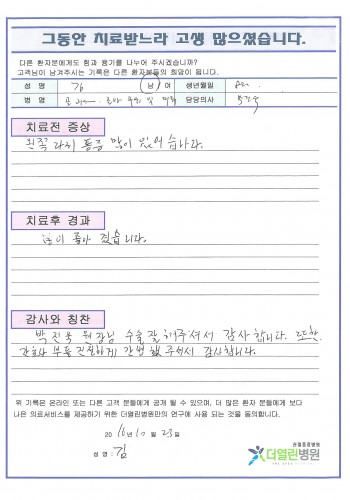 그동안 치료받느라 고생 많으셨습니다.
다른 환자분에게도 힘과 용기를 나누어 주시겠습니까?
고객님이 남겨주시는 기록은 다른 환자분들의 희망이 됩니다.
성 명 김 남 여 생년월일
병 명 담당의사
치료전 증상
왼쪽 다리 통증 많이 있어습니다.
치료후 경과
많이 좋아 졌습니다.
감사와 칭찬
박진욱 원장님 수술 잘 해주셔서 감사합니다. 또한
간호사 분들 친절하게 간병 해 주셔서 감사합니다.
위 기록은 온라인 또는 다른 고객 분들에게 공개 될 수 있으며, 더 많은 환자 분들에게 보다
나은 의료서비스를 제공하기 위한 더열린병원만의 연구에 사용 되는 것을 동의합니다.
20 16 년 10 월 25일
성 명 : 김
관절중점병원
더열린병원